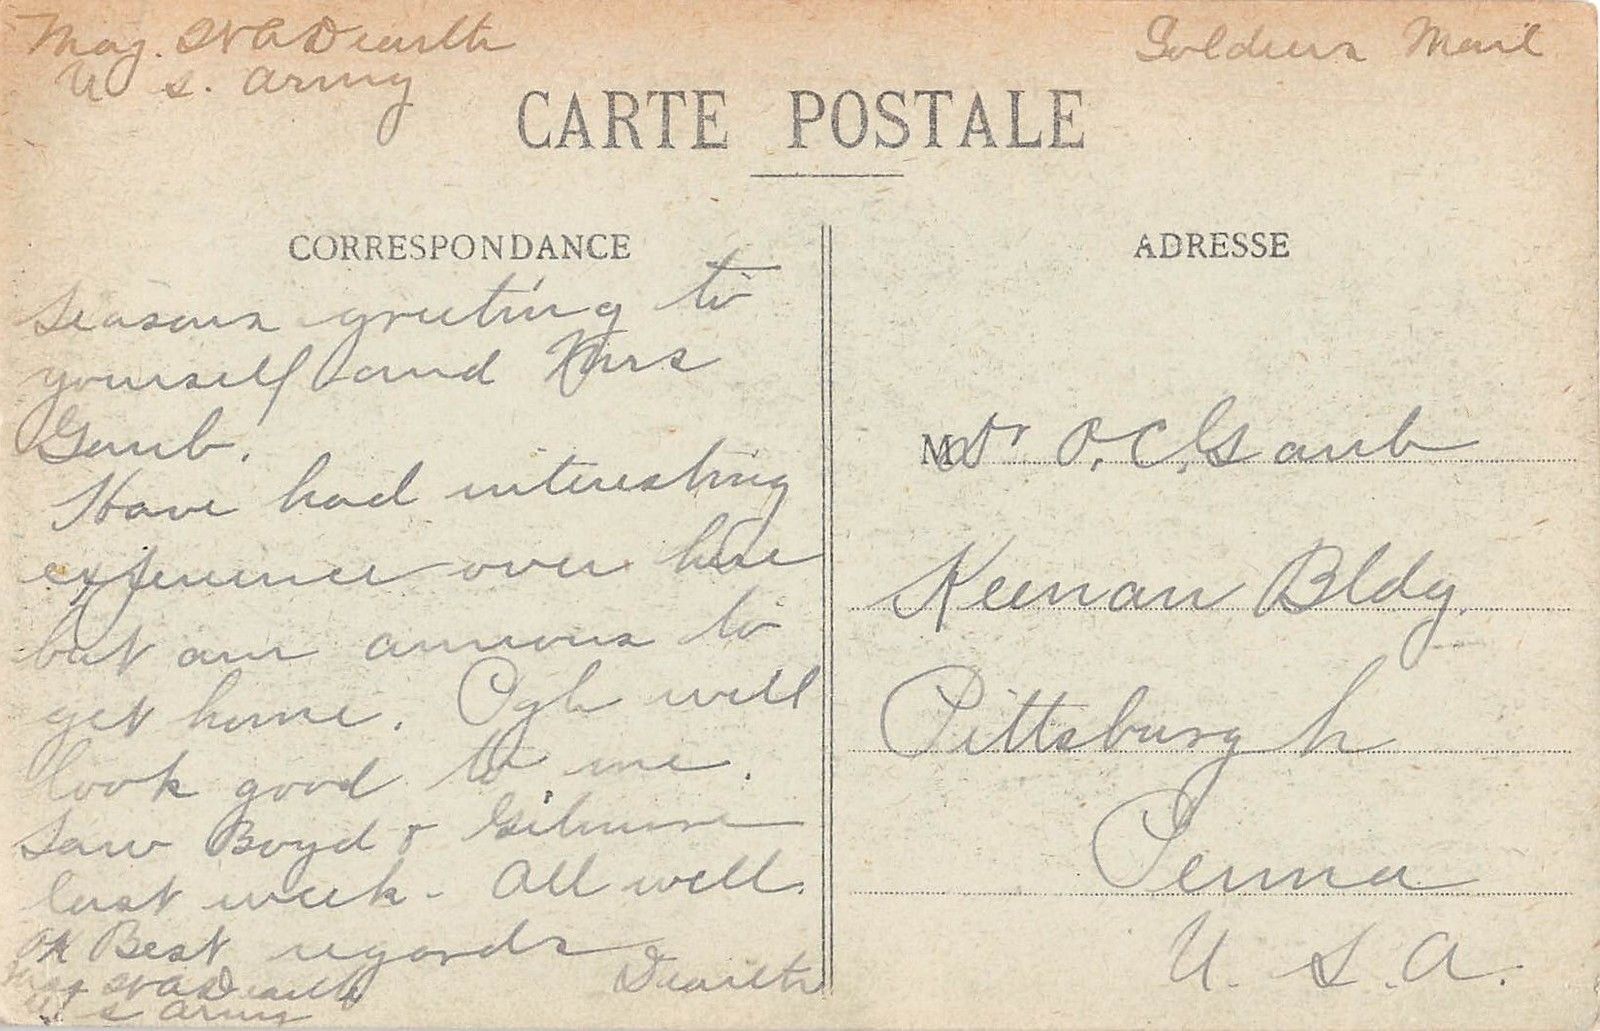 Maj. W A Dearth
U. S. Army
Soldiers Mail
CARTE POSTALE
CORRESPONDANCE
Seasons greeting to
yourself and Mrs
Gaub.
Have had interesting
experience over here
but am anxious to
get home. Pgh will
look good to me.
Saw Boyd & Gilmore
last week - All well.
Best regards
Dearth
OK
Maj W A Dearth
U S Army
ADRESSE
M Dr O. C. Gaub
Keenan Bldg.
Pittsburgh
Penna
U. S. A.